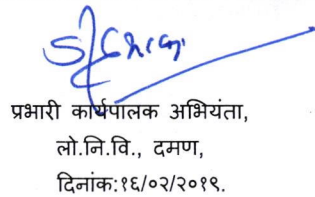 प्रभारी कार्यपालक अभियंता,
लो.नि.वि., दमण,
दिनांक:१६/०२/२०१९.